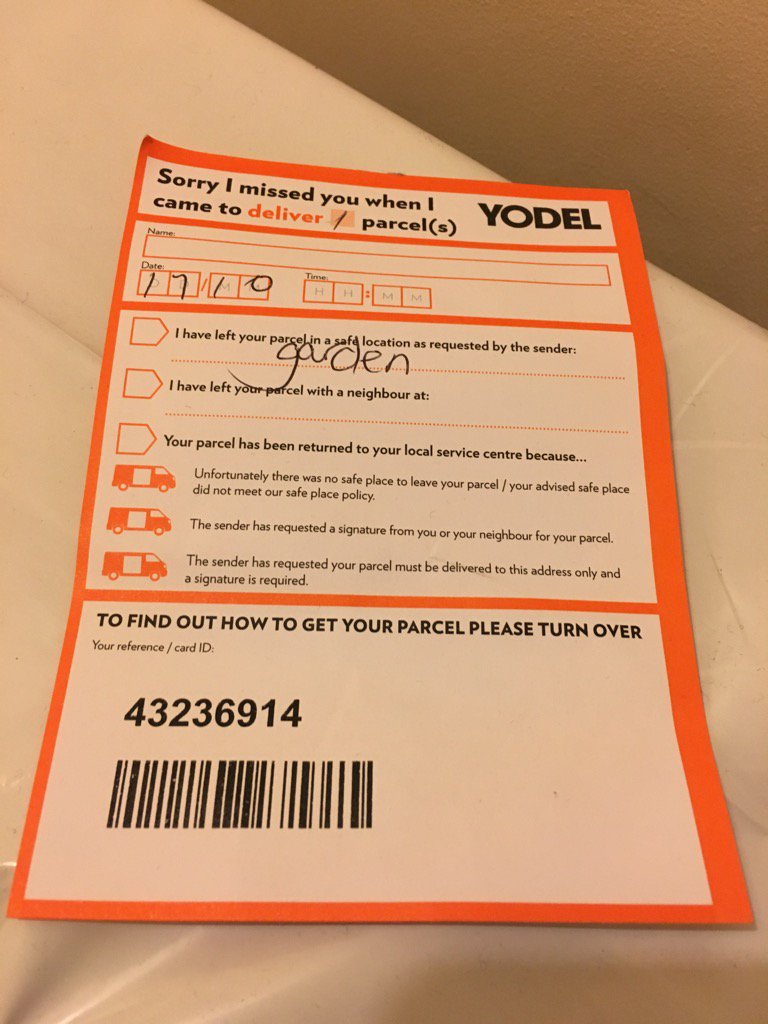 Sorry I missed you when I
came to deliver 1 parcel(s)
YODEL
Name:
Date: Time:
17/10 H H : M M
I have left your parcel in a safe location as requested by the sender:
garden
I have left your parcel with a neighbour at:
Your parcel has been returned to your local service centre because...
Unfortunately there was no safe place to leave your parcel / your advised safe place
did not meet our safe place policy.
The sender has requested a signature from you or your neighbour for your parcel.
The sender has requested your parcel must be delivered to this address only and
a signature is required.
TO FIND OUT HOW TO GET YOUR PARCEL PLEASE TURN OVER
Your reference / card ID:
43236914